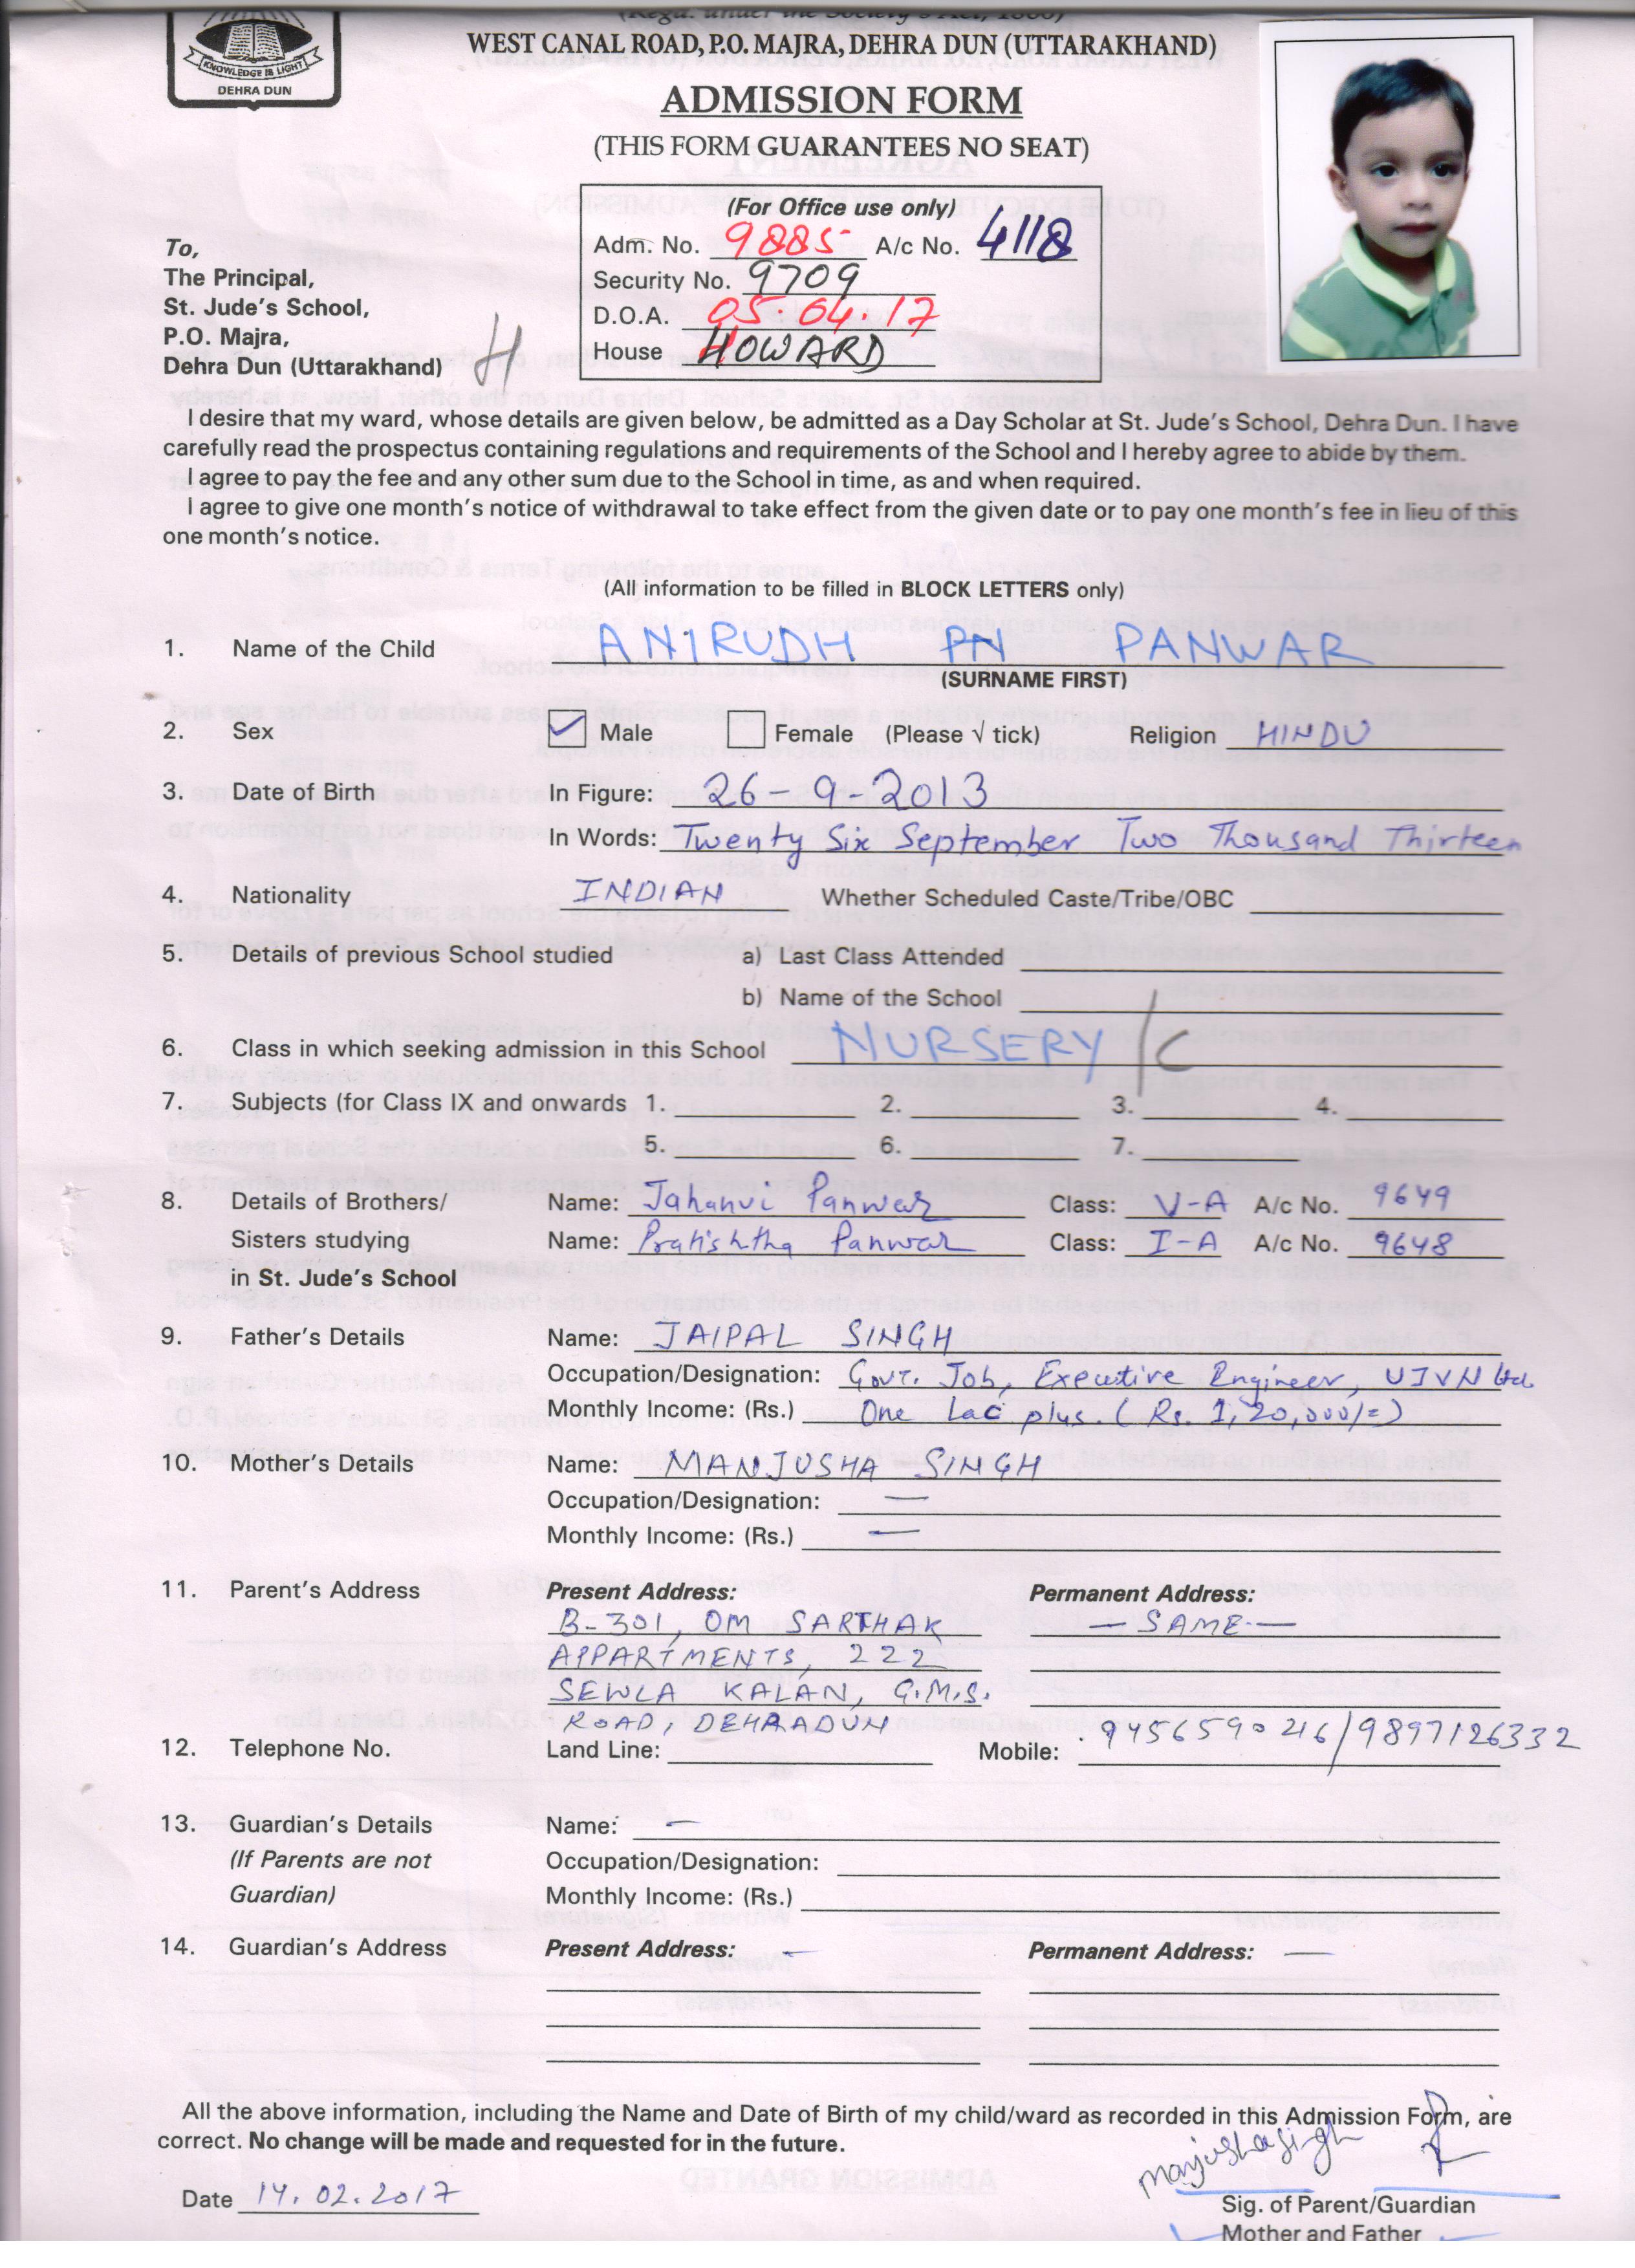 (Regd. under the Society's Act, 1860)
KNOWLEDGE IS LIGHT
DEHRA DUN
WEST CANAL ROAD, P.O. MAJRA, DEHRA DUN (UTTARAKHAND)
ADMISSION FORM
(THIS FORM GUARANTEES NO SEAT)
(For Office use only)
Adm. No. 9885 A/c No. 4118
Security No. 9709
D.O.A. 05.04.17
House HOWARD
To,
The Principal,
St. Jude's School,
P.O. Majra,
Dehra Dun (Uttarakhand)
H
I desire that my ward, whose details are given below, be admitted as a Day Scholar at St. Jude's School, Dehra Dun. I have
carefully read the prospectus containing regulations and requirements of the School and I hereby agree to abide by them.
I agree to pay the fee and any other sum due to the School in time, as and when required.
I agree to give one month's notice of withdrawal to take effect from the given date or to pay one month's fee in lieu of this
one month's notice.
(All information to be filled in BLOCK LETTERS only)
1. Name of the Child ANIRUDH PN PANWAR
(SURNAME FIRST)
2. Sex Male Female (Please √ tick) Religion HINDU
3. Date of Birth In Figure: 26-9-2013
In Words: Twenty Six September Two Thousand Thirteen
4. Nationality INDIAN Whether Scheduled Caste/Tribe/OBC
5. Details of previous School studied a) Last Class Attended
b) Name of the School
6. Class in which seeking admission in this School NURSERY /C
7. Subjects (for Class IX and onwards 1. 2. 3. 4.
5. 6. 7.
8. Details of Brothers/ Name: Jahanvi Panwar Class: V-A A/c No. 9649
Sisters studying Name: Pratishtha Panwar Class: I-A A/c No. 9648
in St. Jude's School
9. Father's Details Name: JAIPAL SINGH
Occupation/Designation: Govt. Job, Executive Engineer, UJVN Ltd
Monthly Income: (Rs.) One Lac plus. (Rs. 1,20,000/=)
10. Mother's Details Name: MANJUSHA SINGH
Occupation/Designation: —
Monthly Income: (Rs.) —
11. Parent's Address Present Address: Permanent Address:
B-301, OM SARTHAK — SAME —
APPARTMENTS, 222
SEWLA KALAN, G.M.S.
ROAD, DEHRADUN
12. Telephone No. Land Line: Mobile: 9456590216/9897126332
13. Guardian's Details Name: —
(If Parents are not Occupation/Designation:
Guardian) Monthly Income: (Rs.)
14. Guardian's Address Present Address: — Permanent Address: —
All the above information, including the Name and Date of Birth of my child/ward as recorded in this Admission Form, are
correct. No change will be made and requested for in the future.
Manjusha Singh
Date 14.02.2017
Sig. of Parent/Guardian
Mother and Father